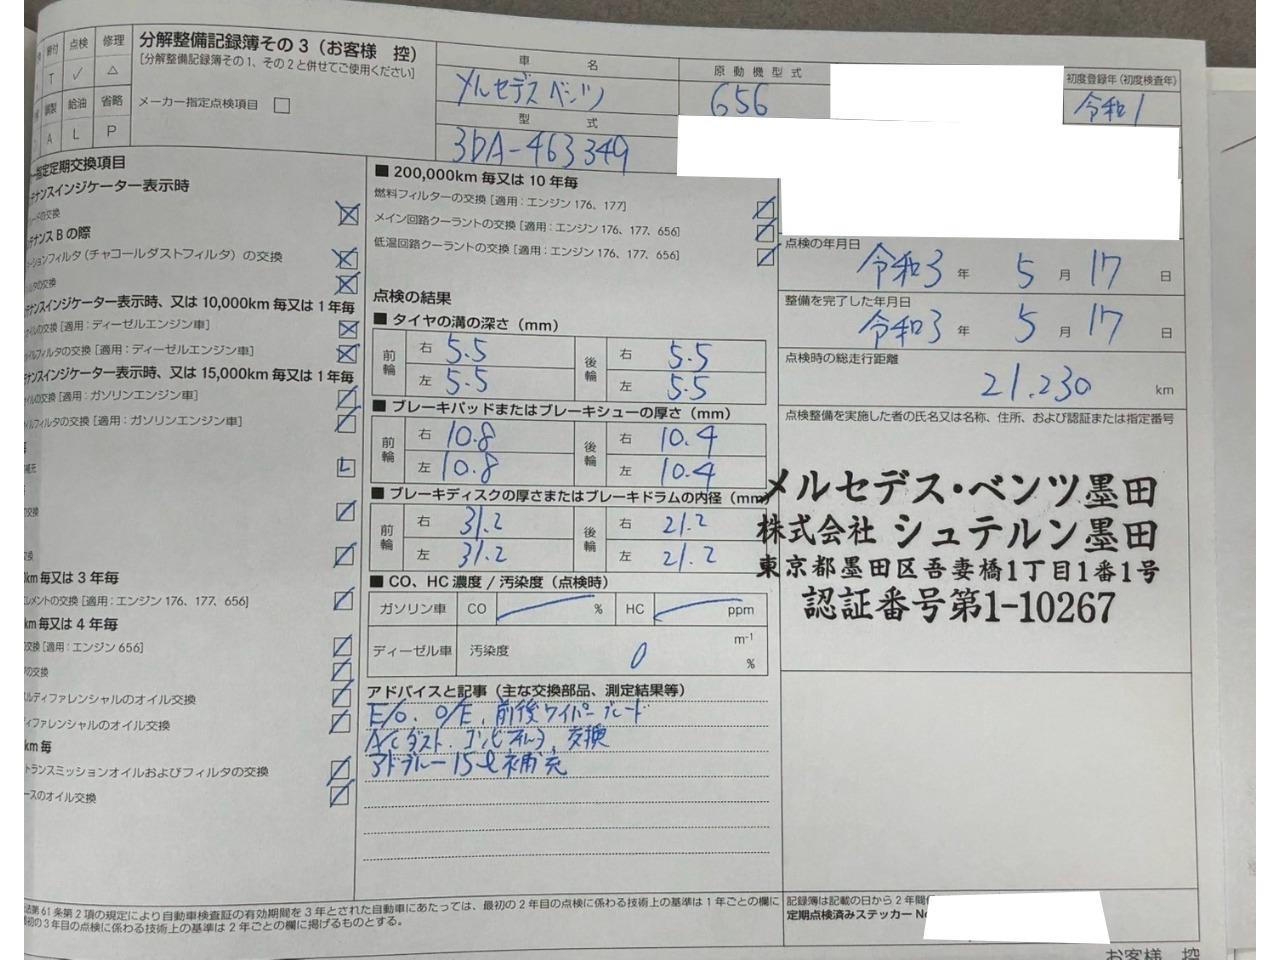 締付 点検 修理
T ✓ △
調製 給油 省略
A L P
分解整備記録簿その3（お客様　控）
[分解整備記録簿その1、その2と併せてご使用ください]
メーカー指定点検項目
車　名
メルセデス ベンツ
型　式
3DA-463349
原動機型式
656
初度登録年(初度検査年)
令和1
指定定期交換項目
テナンスインジケーター表示時
ードの交換
テナンスBの際
ーションフィルタ(チャコールダストフィルタ)の交換
ルタの交換
テナンスインジケーター表示時、又は10,000km毎又は1年毎
イルの交換 [適用：ディーゼルエンジン車]
イルフィルタの交換 [適用：ディーゼルエンジン車]
テナンスインジケーター表示時、又は15,000km毎又は1年毎
イルの交換 [適用：ガソリンエンジン車]
イルフィルタの交換 [適用：ガソリンエンジン車]
毎
補充
L
の交換
交換
km毎又は3年毎
エレメントの交換 [適用：エンジン176、177、656]
km毎又は4年毎
の交換 [適用：エンジン656]
の交換
ルディファレンシャルのオイル交換
ディファレンシャルのオイル交換
km毎
トランスミッションオイルおよびフィルタの交換
ースのオイル交換
■ 200,000km毎又は10年毎
燃料フィルターの交換 [適用：エンジン176、177]
メイン回路クーラントの交換 [適用：エンジン176、177、656]
低温回路クーラントの交換 [適用：エンジン176、177、656]
点検の結果
■ タイヤの溝の深さ（mm）
前輪 右 5.5 後輪 右 5.5
左 5.5 左 5.5
■ ブレーキパッドまたはブレーキシューの厚さ（mm）
前輪 右 10.8 後輪 右 10.4
左 10.8 左 10.4
■ ブレーキディスクの厚さまたはブレーキドラムの内径（mm）
前輪 右 31.2 後輪 右 21.2
左 31.2 左 21.2
■ CO、HC濃度 / 汚染度（点検時）
ガソリン車 CO % HC ppm
ディーゼル車 汚染度 0 m⁻¹
%
アドバイスと記事（主な交換部品、測定結果等）
E/O、O/E、前後ワイパーブレード
A/Cダスト、コンビフィルタ、交換
アドブルー15ℓ補充
点検の年月日
令和3 年 5 月 17 日
整備を完了した年月日
令和3 年 5 月 17 日
点検時の総走行距離
21.230 km
点検整備を実施した者の氏名又は名称、住所、および認証または指定番号
メルセデス・ベンツ墨田
株式会社 シュテルン墨田
東京都墨田区吾妻橋1丁目1番1号
認証番号第1-10267
法第61条第2項の規定により自動車検査証の有効期間を3年とされた自動車にあたっては、最初の2年目の点検に係わる技術上の基準は1年ごとの欄に
最初の3年目の点検に係わる技術上の基準は2年ごとの欄に掲げるものとする。
記録簿は記載の日から2年間
定期点検済みステッカー No
お客様　控